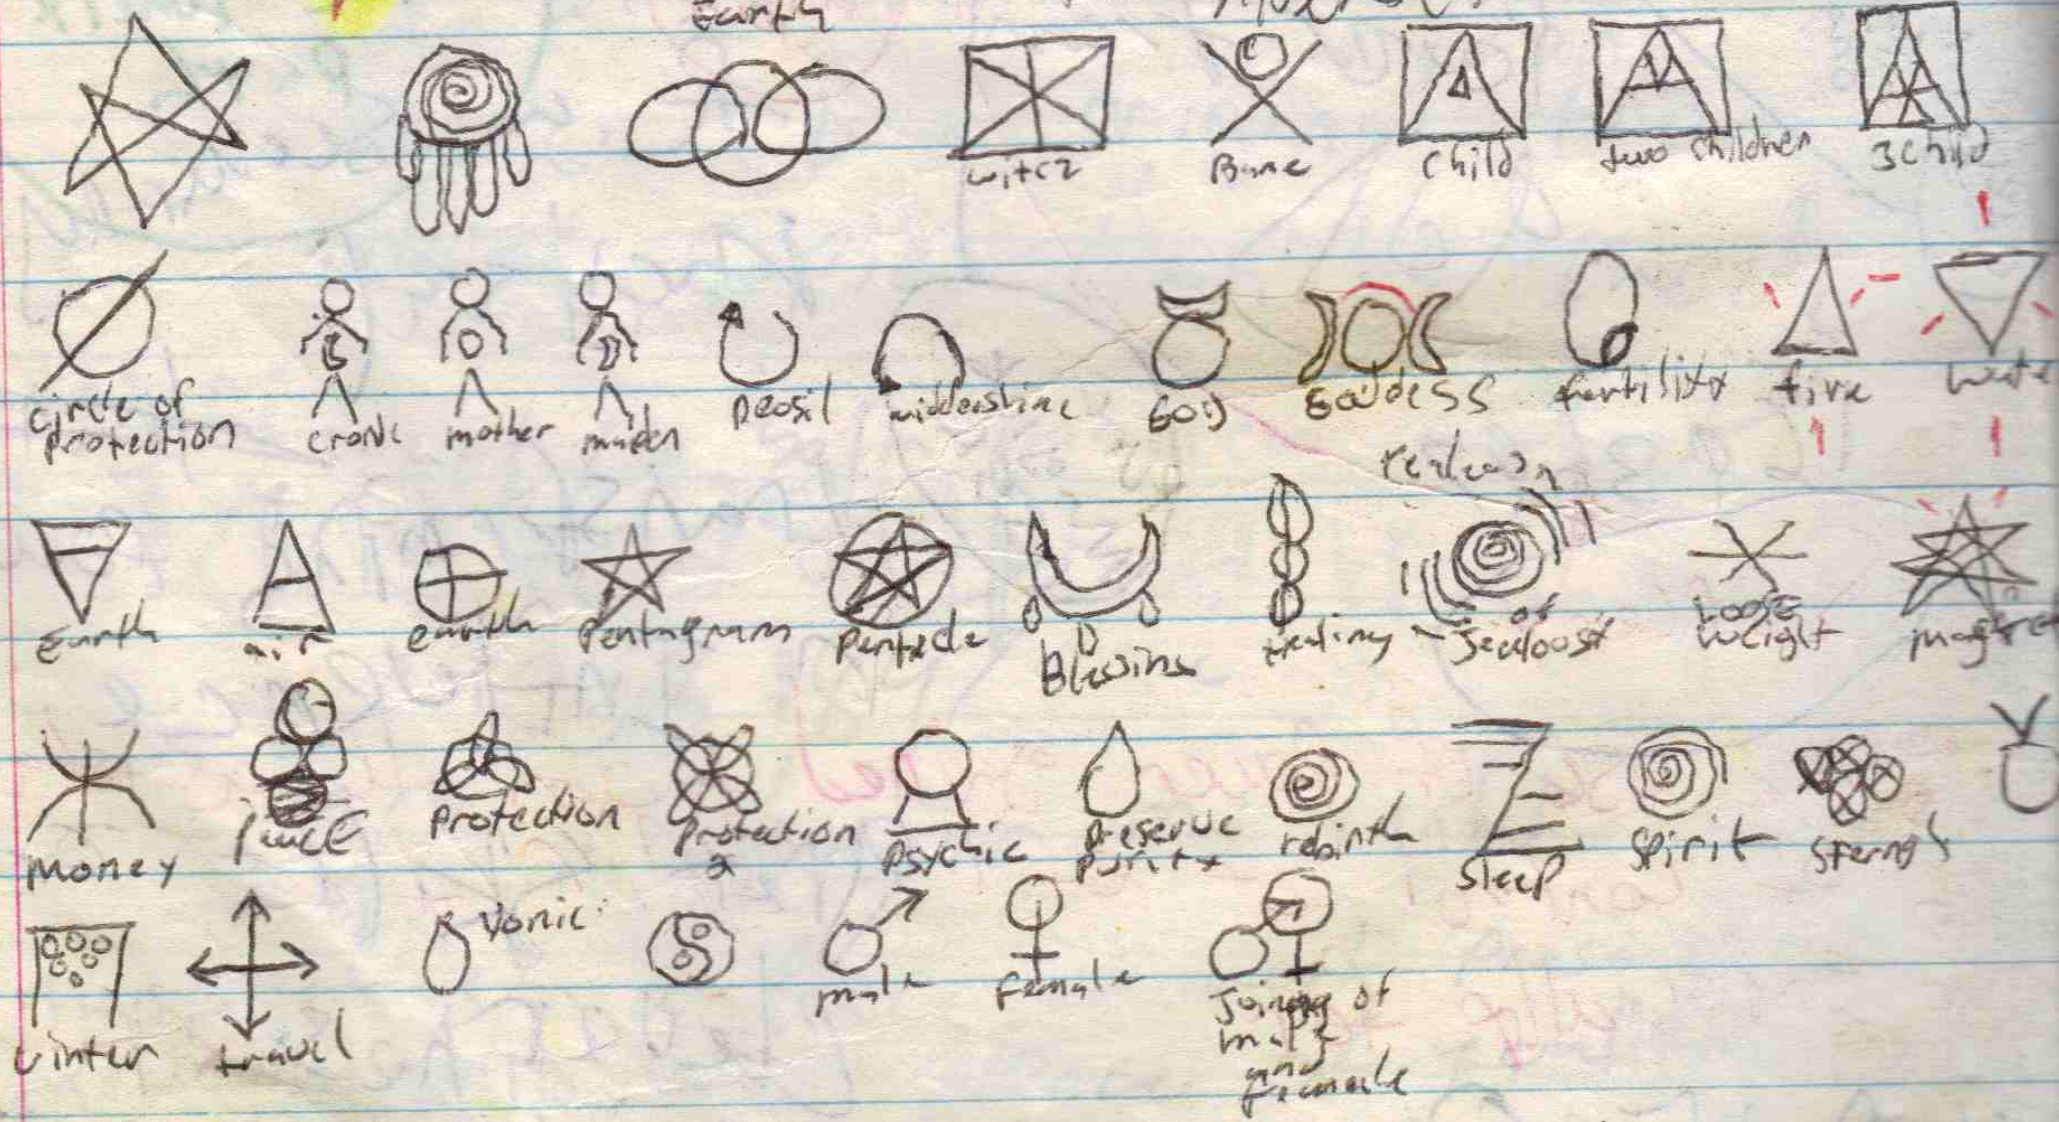 Earth
witcz
Bane
Child
two children
3 child
circle of
protection
crone
mother
maiden
Deosil
God
Goddess
fertility
fire
Earth
air
earth
Pentagram
Pentacle
Healing
of
Jealousy
Loose
weight
Money
Protection
Protection
2
Psychic
Preserve
purity
rebirth
Sleep
Spirit
winter
travel
Yonic
male
female
Joining of
male
and
female